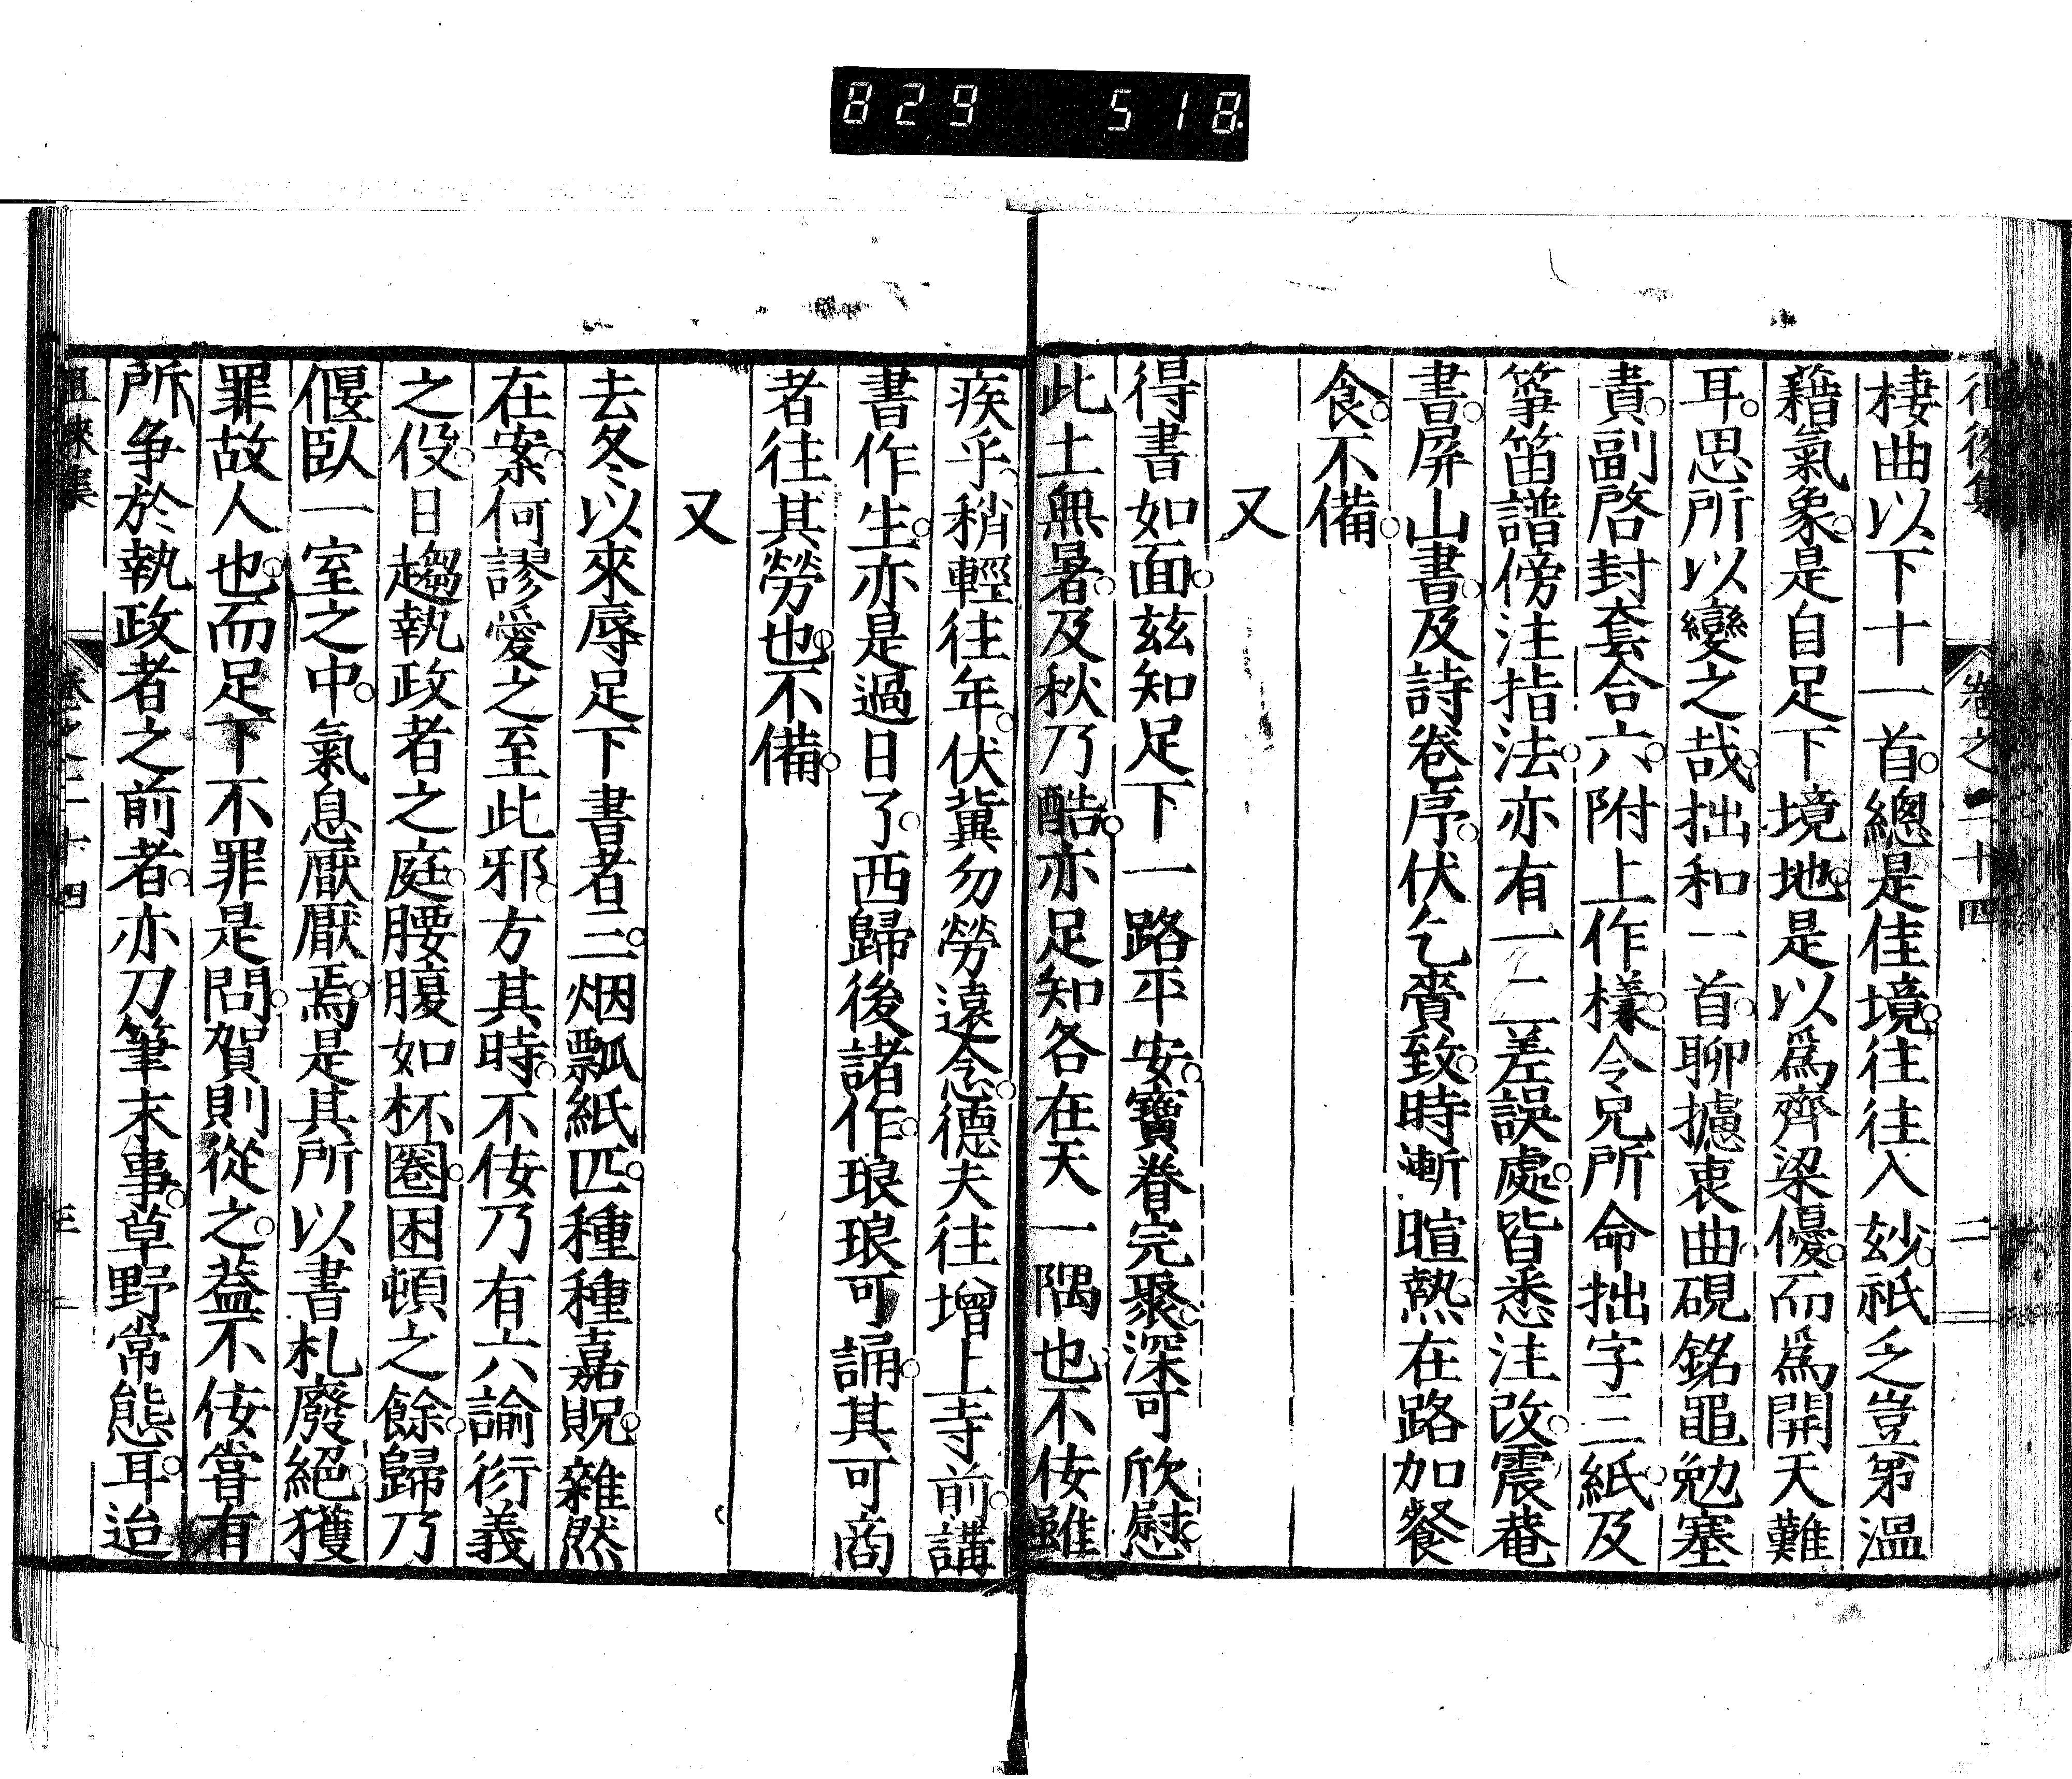 829 518
徂徠集 卷之二十四 二
棲曲以下十一首。總是佳境。往往入玅。祇乏豈第溫
藉氣象。是自足下境地。是以爲齊梁優。而爲開天難
耳。思所以變之哉。拙和一首。聊攄衷曲。硯銘黽勉塞
責。副啓封套合六。附上作樣。令兄所命拙字三紙。及
箏笛譜傍注指法。亦有一二差誤處。皆悉注改。震菴
書。屏山書。及詩卷序。伏乞賷致。時漸暄熱。在路加餐
食。不備。
又
得書如面。玆知足下一路平安。寶眷完聚。深可欣慰。
此土無暑。及秋乃酷。亦足知各在天一隅也。不佞雖
疾乎。稍輕往年。伏冀勿勞遠念。德夫往增上寺前。講
書作生。亦是過日了。西歸後諸作。琅琅可誦。其可商
者往其勞也。不備。
又
去冬以來。辱足下書者三。烟瓢紙匹。種種嘉貺。雜然
在案。何謬愛之至此邪。方其時。不佞乃有六諭衍義
之役。日趨執政者之庭。腰腹如杯圈。困頓之餘。歸乃
偃臥一室之中。氣息厭厭焉。是其所以書札廢絕。獲
罪故人也。而足下不罪是問。賀則從之。葢不佞嘗有
所争於執政者之前者。亦刀筆末事。草野常態耳。迨
徂徠集 卷之二十四 三